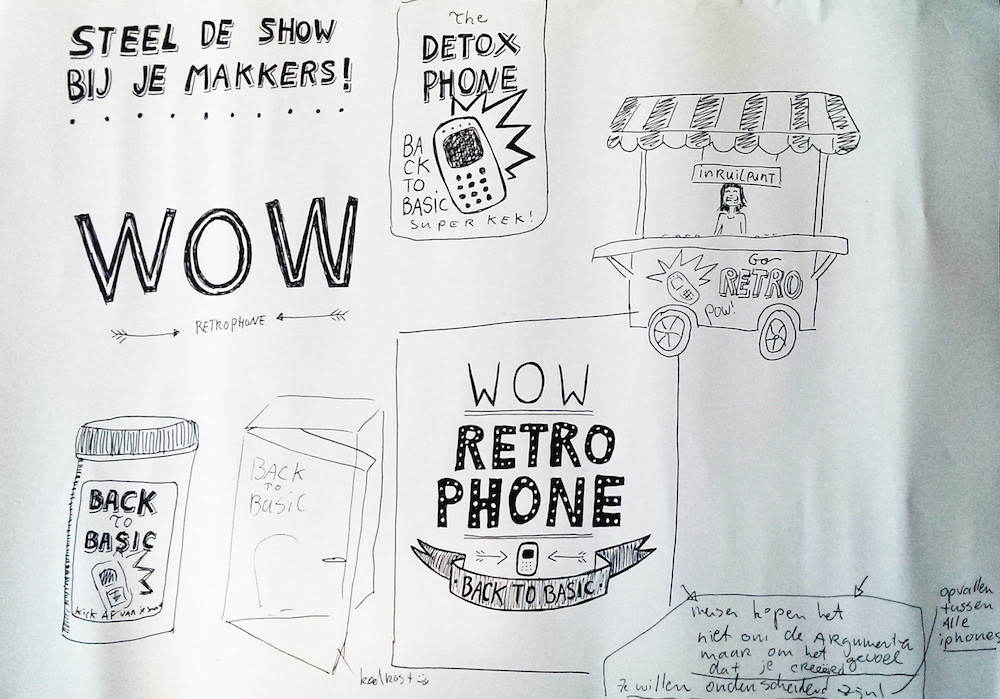 STEEL DE SHOW
BIJ JE MAKKERS!
The
DETOX
PHONE
BA
CK
TO
BASIC
SUPER KEK!
INRUILPUNT
Go
RETRO
POW!
WOW
RETROPHONE
WOW
RETRO
PHONE
BACK TO BASIC
BACK
TO
BASIC
kick AF van je
BACK
TO
BasiC
koelkast
mensen kopen het
niet om de Argumenten
maar om het gevoel
dat je creëerd
Ze willen onderscheidend zijn!
opvallen
tussen
Alle
iphones